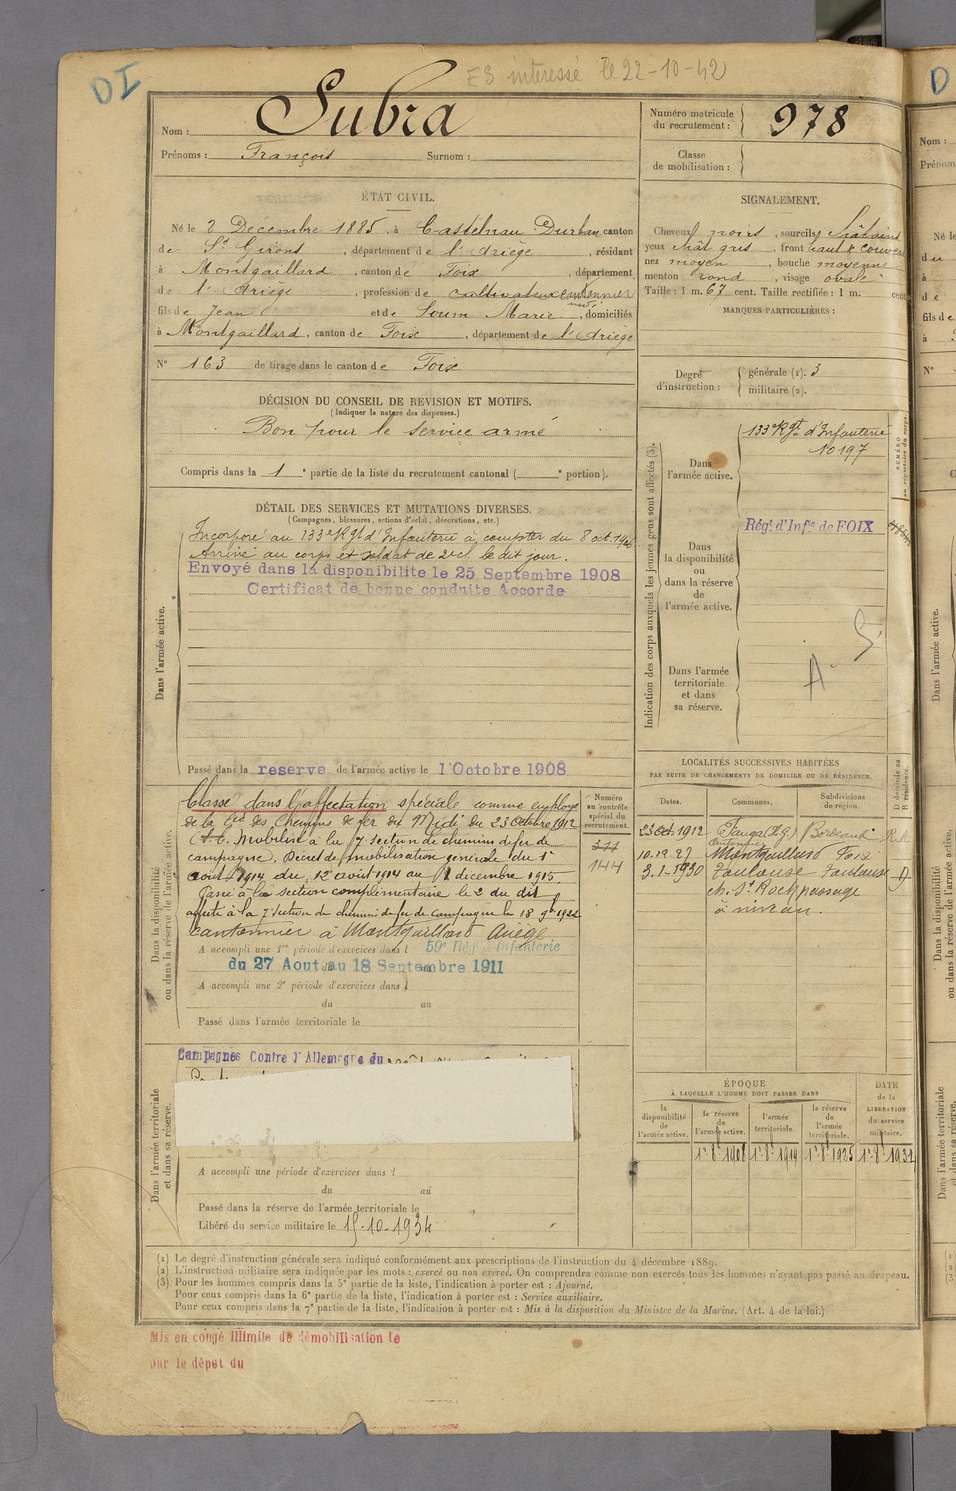 DI
ES interessé le 22-10-42
Nom : Subra
Prénoms : François Surnom :
Numéro matricule du recrutement : 978
Classe de mobilisation :
ÉTAT CIVIL.
Né le 2 Décembre 1885, à Castelnau Durban canton
de St Girons, département de l'Ariège, résidant
à Montgaillard, canton de Foix, département
de l'Ariège, profession de cultivateur cantonnier
fils de Jean et de Soum Marie, domiciliés
à Montgaillard, canton de Foix, département de l'Ariège
N° 163 de tirage dans le canton de Foix
SIGNALEMENT.
Cheveux noirs, sourcils châtains
yeux chât gris, front haut & couvert
nez moyen, bouche moyenne
menton rond, visage ovale
Taille : 1 m. 67 cent. Taille rectifiée : 1 m. cent.
MARQUES PARTICULIÈRES :
Degré d'instruction : générale (1). 3
militaire (2).
DÉCISION DU CONSEIL DE REVISION ET MOTIFS.
(Indiquer la nature des dispenses.)
Bon pour le service armé
Compris dans la 1e partie de la liste du recrutement cantonal ( e portion).
DÉTAIL DES SERVICES ET MUTATIONS DIVERSES.
(Campagnes, blessures, actions d'éclat, décorations, etc.)
Dans l'armée active.
Incorporé au 133e Rgt d'Infanterie à compter du 8 oct. 1906
Arrivé au corps et soldat de 2e cl. le dit jour.
Envoyé dans la disponibilite le 25 Septembre 1908
Certificat de bonne conduite Accorde
Passé dans la reserve de l'armée active le 1 Octobre 1908
Indication des corps auxquels les jeunes gens sont affectés (3).
Dans l'armée active.
133e Rgt d'Infanterie
10197
Dans la disponibilité ou dans la réserve de l'armée active.
Régt d'Infie de FOIX
Dans l'armée territoriale et dans sa réserve.
A
Dans la disponibilité ou dans la réserve de l'armée active.
Classé dans l'affectation spéciale comme employé
de la Cie des Chemins de fer du Midi du 23 Octobre 1912
A.C. Mobilisé à la 7e section de chemin de fer de
campagne. Décret de mobilisation générale du 1er
août 1914 du 12 août 1914 au 12 décembre 1915.
Passé à la section complémentaire le 2 du dit
affecté à la 7e Section de chemin de fer de campagne le 18
cantonnier à Montgaillard Ariège
A accompli une 1re période d'exercices dans l 59e Rég d'Infanterie
du 27 Aout au 18 Septembre 1911
A accompli une 2e période d'exercices dans l
du au
Passé dans l'armée territoriale le
Numéro au contrôle spécial du recrutement.
144
LOCALITÉS SUCCESSIVES HABITÉES
PAR SUITE DE CHANGEMENTS DE DOMICILE OU DE RÉSIDENCE.
Dates. Communes. Subdivisions de région. D domicile ou R résidence.
23 Oct 1912 Fauga (H.G.) Bordeaux
10.12.27 Montgaillard Foix
3-1-1930 Toulouse Toulouse D
ch. St Roch passage
à niveau.
Dans l'armée territoriale et dans sa réserve.
Campagnes Contre l'Allemagne du
A accompli une période d'exercices dans l
du au
Passé dans la réserve de l'armée territoriale le
Libéré du service militaire le 15-10-1934
ÉPOQUE
À LAQUELLE L'HOMME DOIT PASSER DANS
la disponibilité de l'armée active.
la réserve de l'armée active.
l'armée territoriale.
la réserve de l'armée territoriale.
DATE de la LIBÉRATION du service militaire.
1er 8bre 1908 1er 8bre 1914 1er 8bre 1925 1er 8bre 1931
(1) Le degré d'instruction générale sera indiqué conformément aux prescriptions de l'instruction du 4 décembre 1889.
(2) L'instruction militaire sera indiquée par les mots : exercé ou non exercé. On comprendra comme non exercés tous les hommes n'ayant pas passé au drapeau.
(3) Pour les hommes compris dans la 5e partie de la liste, l'indication à porter est : Ajourné.
Pour ceux compris dans la 6e partie de la liste, l'indication à porter est : Service auxiliaire.
Pour ceux compris dans la 7e partie de la liste, l'indication à porter est : Mis à la disposition du Ministre de la Marine. (Art. 4 de la loi.)
Mis en congé illimité de démobilisation le
par le dépôt du